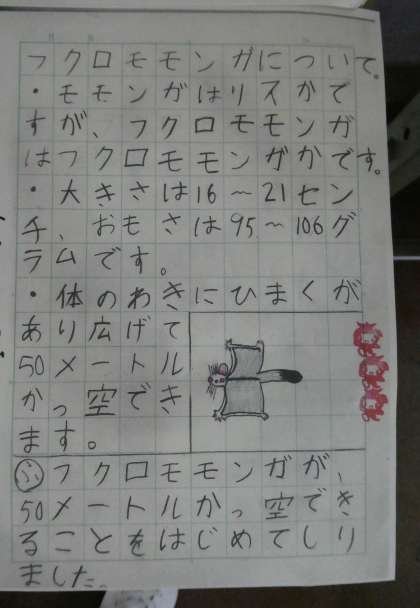 フクロモモンガについて。
・モモンガはリスかで
すが、フクロモモンガ
はフクロモモンガかです。
・大きさは16〜21セン
チ、おもさは95〜106グ
ラムです。
・体のわきにひまくが
あり広げて
50メートル
かっ空でき
ます。
ふフクロモモンガが、
50メートルかっ空でき
ることをはじめてしり
ました。